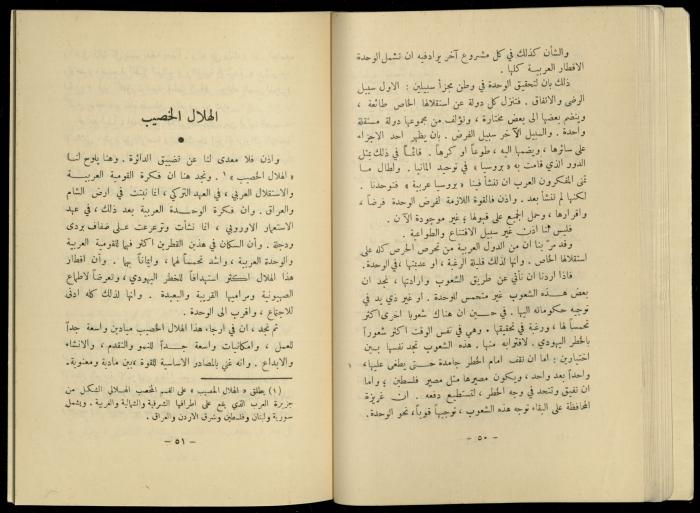 والشأن كذلك في كل مشروع آخر يراد فيه ان تشمل الوحدة
الاقطار العربية كلها .
ذلك بان لتحقيق الوحدة في وطن مجزأ سبيلين : الاول سبيل
الرضى والاتفاق . فتنزل كل دولة عن استقلالها الخاص طائعة ،
وينضم بعضها الى بعض مختارة ، وتؤلف من مجموعها دولة مستقلة
واحدة . والسبيل الآخر سبيل الفرض . بان يظهر احد الاجزاء
على سائرها ، ويضمها اليه ، طوعاً او كرهاً . قائماً في ذلك بمثل
الدور الذي قامت به « بروسيا » في توحيد المانيا . واطال ما
تمنى المفكرون العرب ان تنشأ فينا « بروسيا عربية » فتوحدنا .
لكنها لم تنشأ بعد . واذن فالقوة اللازمة لفرض الوحدة فرضاً ،
واقرارها ، وحمل الجميع على قبولها ؛ غير موجودة الآن .
فليس لنا اذن غير سبيل الاقتناع والطواعية .
وقد مرّ بنا ان من الدول العربية من تحرص الحرص كله على
استقلالها الخاص . وانها لذلك قليلة الرغبة ، او عديمتها ، في الوحدة .
فاذا اردنا ان نأتي عن طريق الشعوب وارادتها ، نجد ان
بعض هذه الشعوب غير متحمس للوحدة . او غير ذي يد في
توجيه حكوماته اليها . في حين ان هناك شعوبا اخرى اكثر
تحمساً لها ، ورغبة في تحقيقها . وهي في نفس الوقت اكثر شعوراً
بالخطر اليهودي . لاقترابه منها . هذه الشعوب تجد نفسها بين
اختيارين : اما ان تقف امام الخطر جامدة حتى يطغى عليها ،
واحداً بعد واحد ، ويكون مصيرها مثل مصير فلسطين ؛ واما
ان تفيق وتتحد في وجه الخطر ، لتستطيع دفعه . ان غريزة
المحافظة على البقاء توجه هذه الشعوب ، توجيهاً قوياً ، نحو الوحدة .
- ٥٠ -
الهلال الخصيب
واذن فلا معدى لنا عن تضييق الدائرة . وهنا يلوح لنا
« الهلال الخصيب » ١ . ونجد هنا ان فكرة القومية العربية
والاستقلال العربي ، في العهد التركي ، انما نبتت في ارض الشام
والعراق . وان فكرة الوحدة العربية بعد ذلك ، في عهد
الاستعمار الاوروبي ، انما نشأت وترعرعت على ضفاف بردى
ودجلة . وأن السكان في هذين القطرين اكثر فهماً للقومية العربية
والوحدة العربية ، واشد تحمساً لها ، وايماناً بها . وأن اقطار
هذا الهلال اكثر استهدافاً للخطر اليهودي ، وتعرضاً لاطماع
الصهيونية ومراميها القريبة والبعيدة . وانها لذلك كله ادنى
للاجتماع ، واقرب الى الوحدة .
ثم نجد ، ان في ارجاء هذا الهلال الخصيب ميادين واسعة جداً
للعمل ، وامكانيات واسعة جداً للنمو والتقدم ، والانشاء
والابداع . وانه غني بالمصادر الاساسية للقوة ، بين مادية ومعنوية .
(١) يطلق « الهلال الخصيب » على القسم المخصب الهلالي الشكل من
جزيرة العرب الذي يقع على اطرافها الشرقية والشمالية والغربية . ويشمل
سورية ولبنان وفلسطين وشرق الاردن والعراق .
- ٥١ -